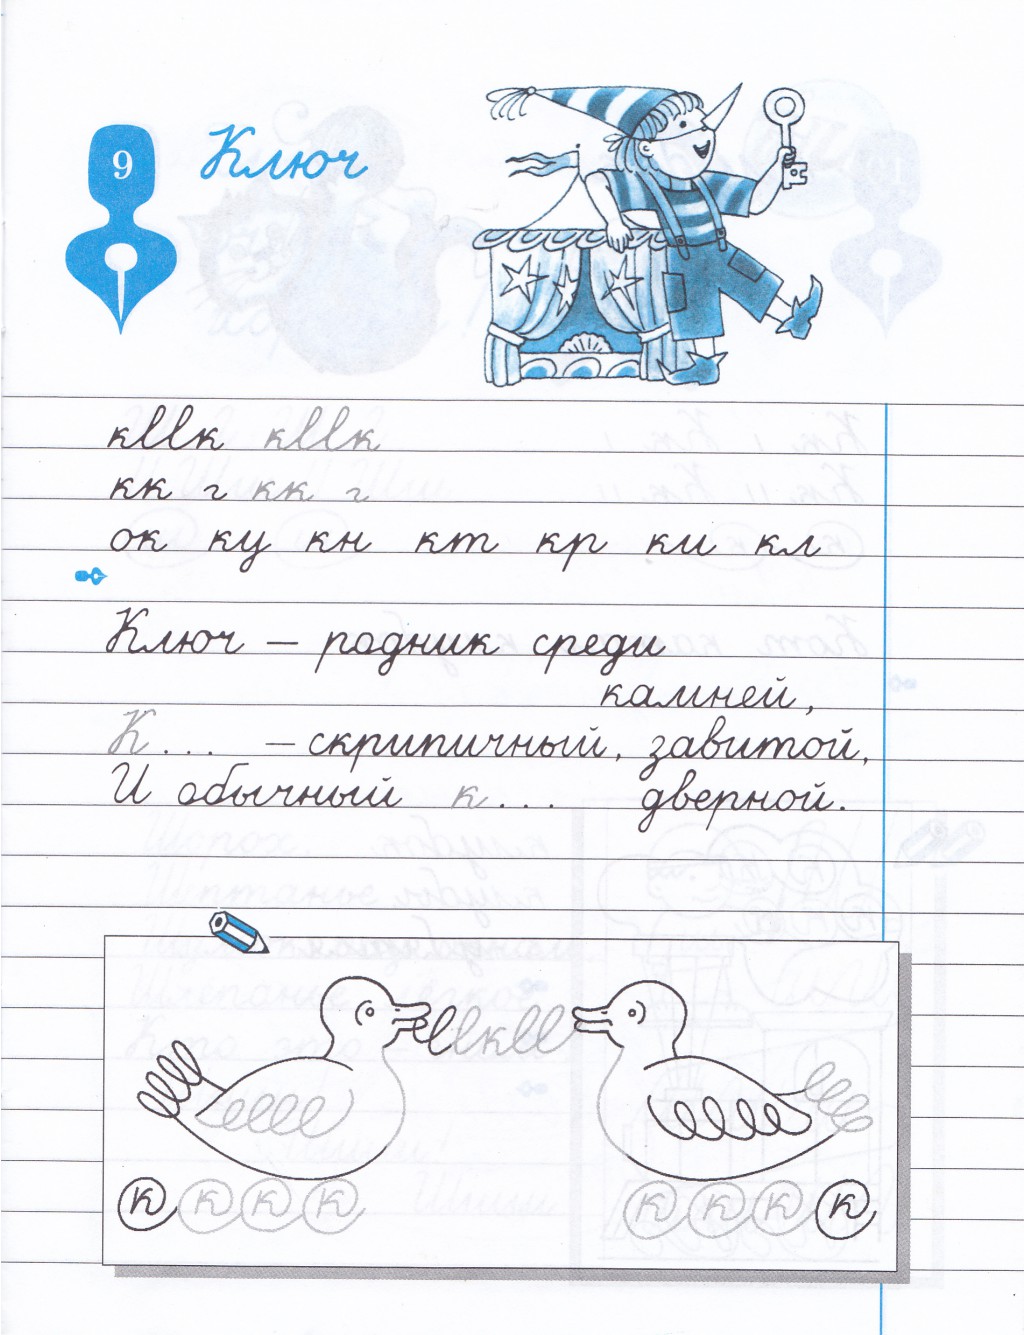 9
Ключ
кllк кllк
кк г кк г
ок ку кн кт кр ки кл
Ключ – родник среди
камней,
К... – скрипичный, завитой,
И обычный к... дверной.
llкll
к к к к к к к к